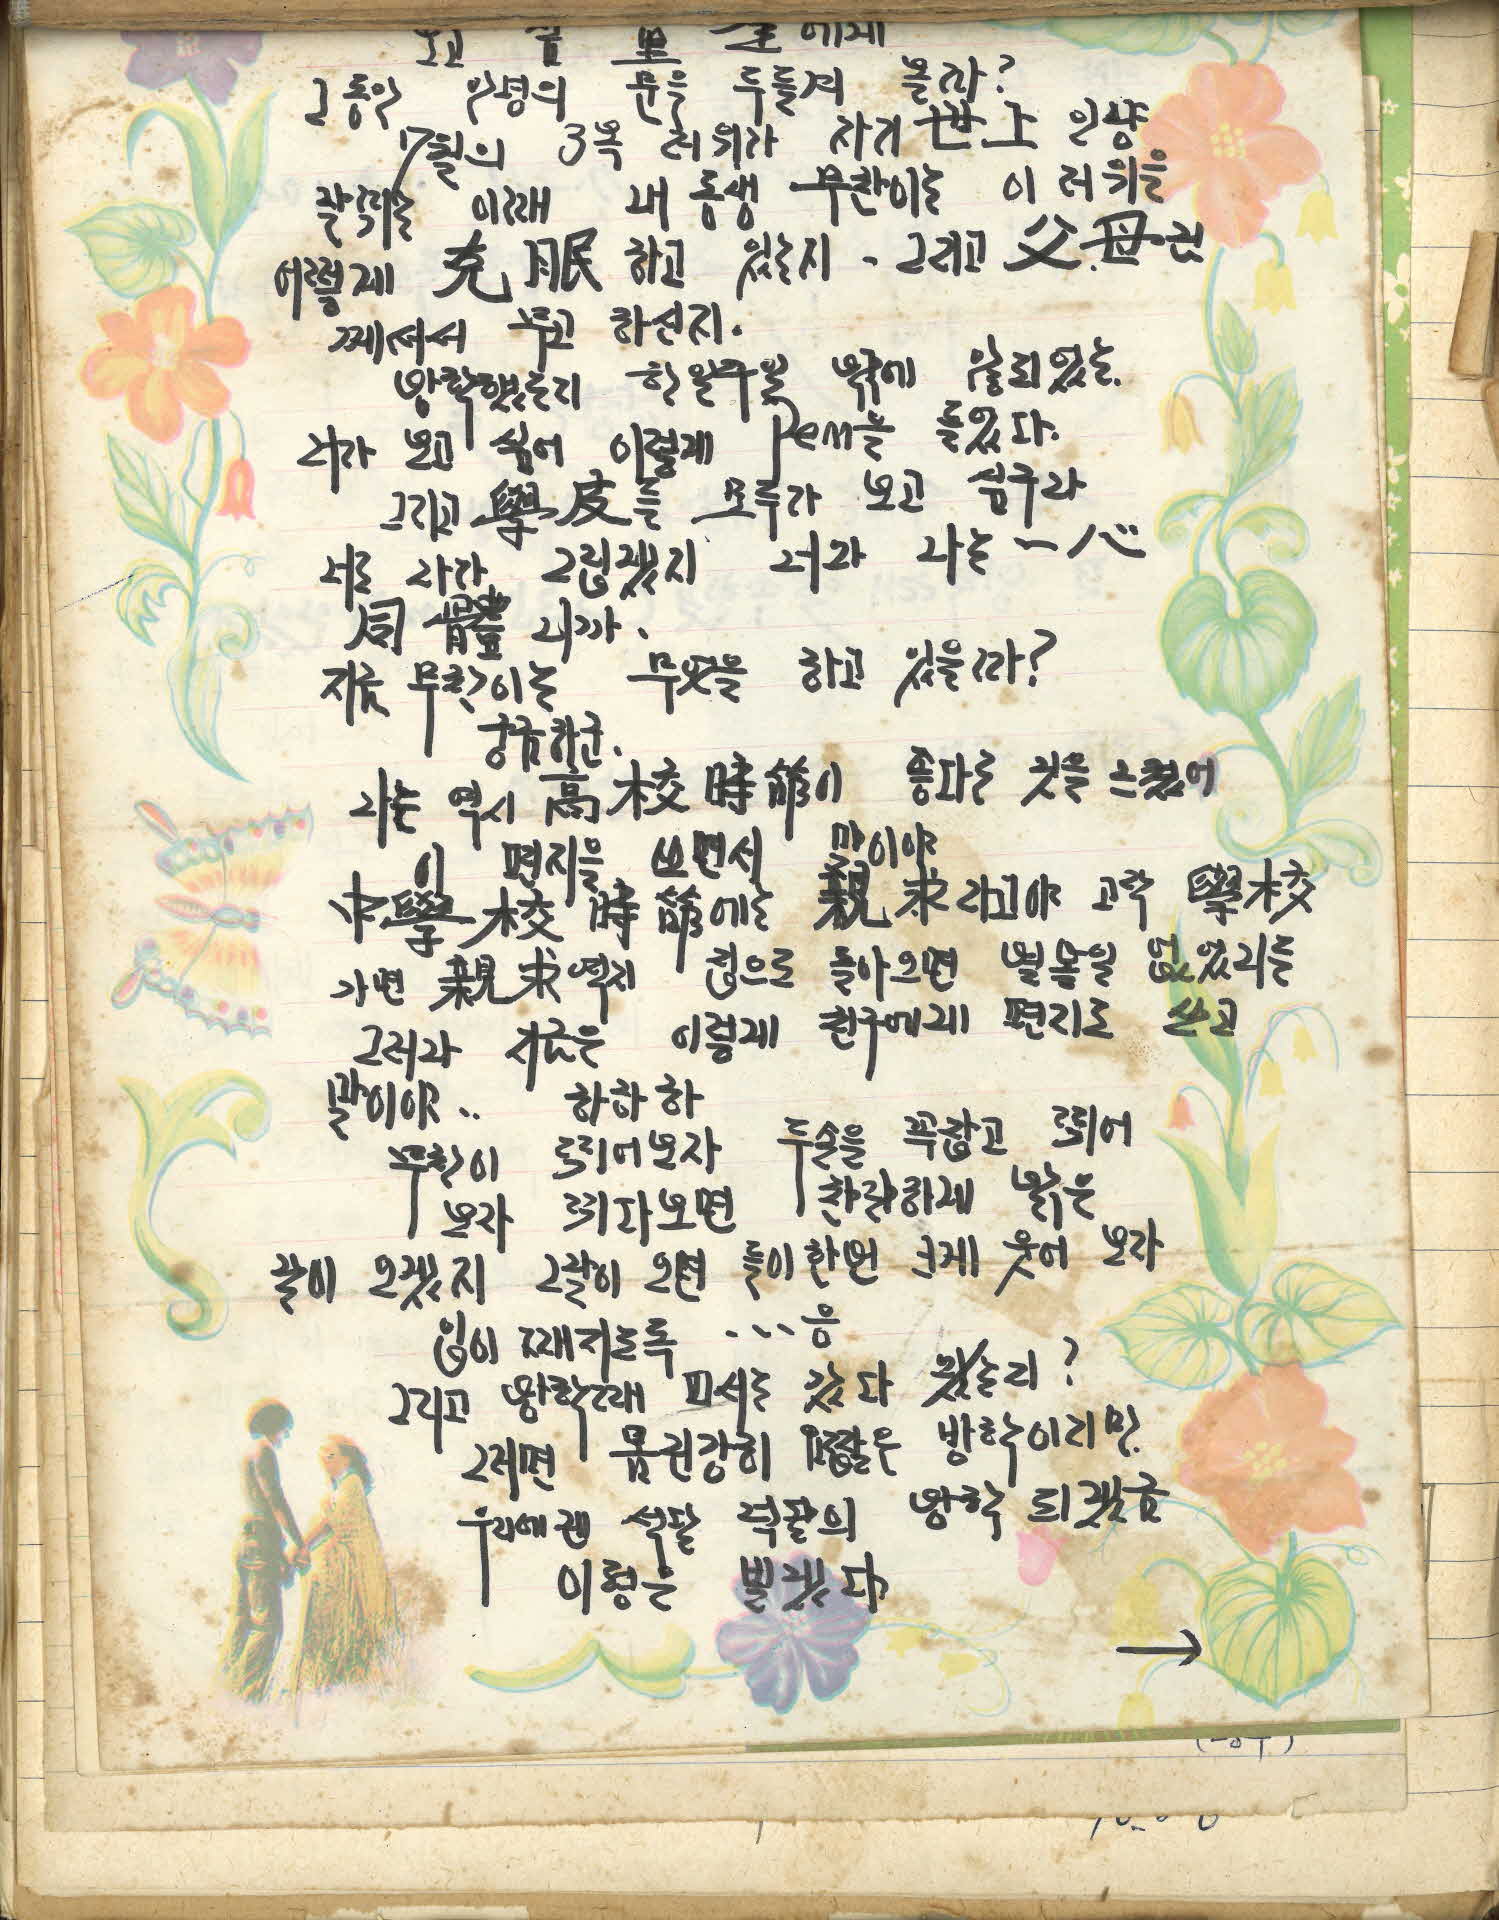 보고 에게
그동안 안녕의 문을 두들겨 볼까?
7월의 3복 더위가 자기 世上 인양
날뛰는 이때 내 동생 무찬이는 이 더위를
어떻게 克眠 하고 있는지 - 그리고 父母님
께서서 두고 하신지.
방학했는지 한 일주일 밖에 않되었는.
너가 보고 싶어 이렇게 pen을 들었다.
그리고 學友들 모두가 보고 싶구나
너는 나가 그립겠지 너와 나는 一心
同體 니까.
지금 무찬이는 무엇을 하고 있을까?
궁금하군.
나는 역시 高校時節이 좋다는 것을 느꼈어
이 편지를 쓰면서 말이야
中學校時節에는 親求라고야 고작 學校
가면 親求역시 집으로 돌아오면 별볼일 없었거든
그러나 지금은 이렇게 친구에게 편지도 쓰고
말이야.. 하하하
무찬이 뛰어보자 두손을 꼭잡고 뛰어
보자 뛰다보면 찬란하게 밝은
날이 오겠지 그날이 오면 둘이 한번 크게 웃어 보자
입이 째지도록 ...응
그리고 방학때 피서는 갔다 왔는지?
그러면 몸건강히 짧은 방학이지만
우리에겐 석달 넉달의 방학 되겠금
이만을 빌겠다
→